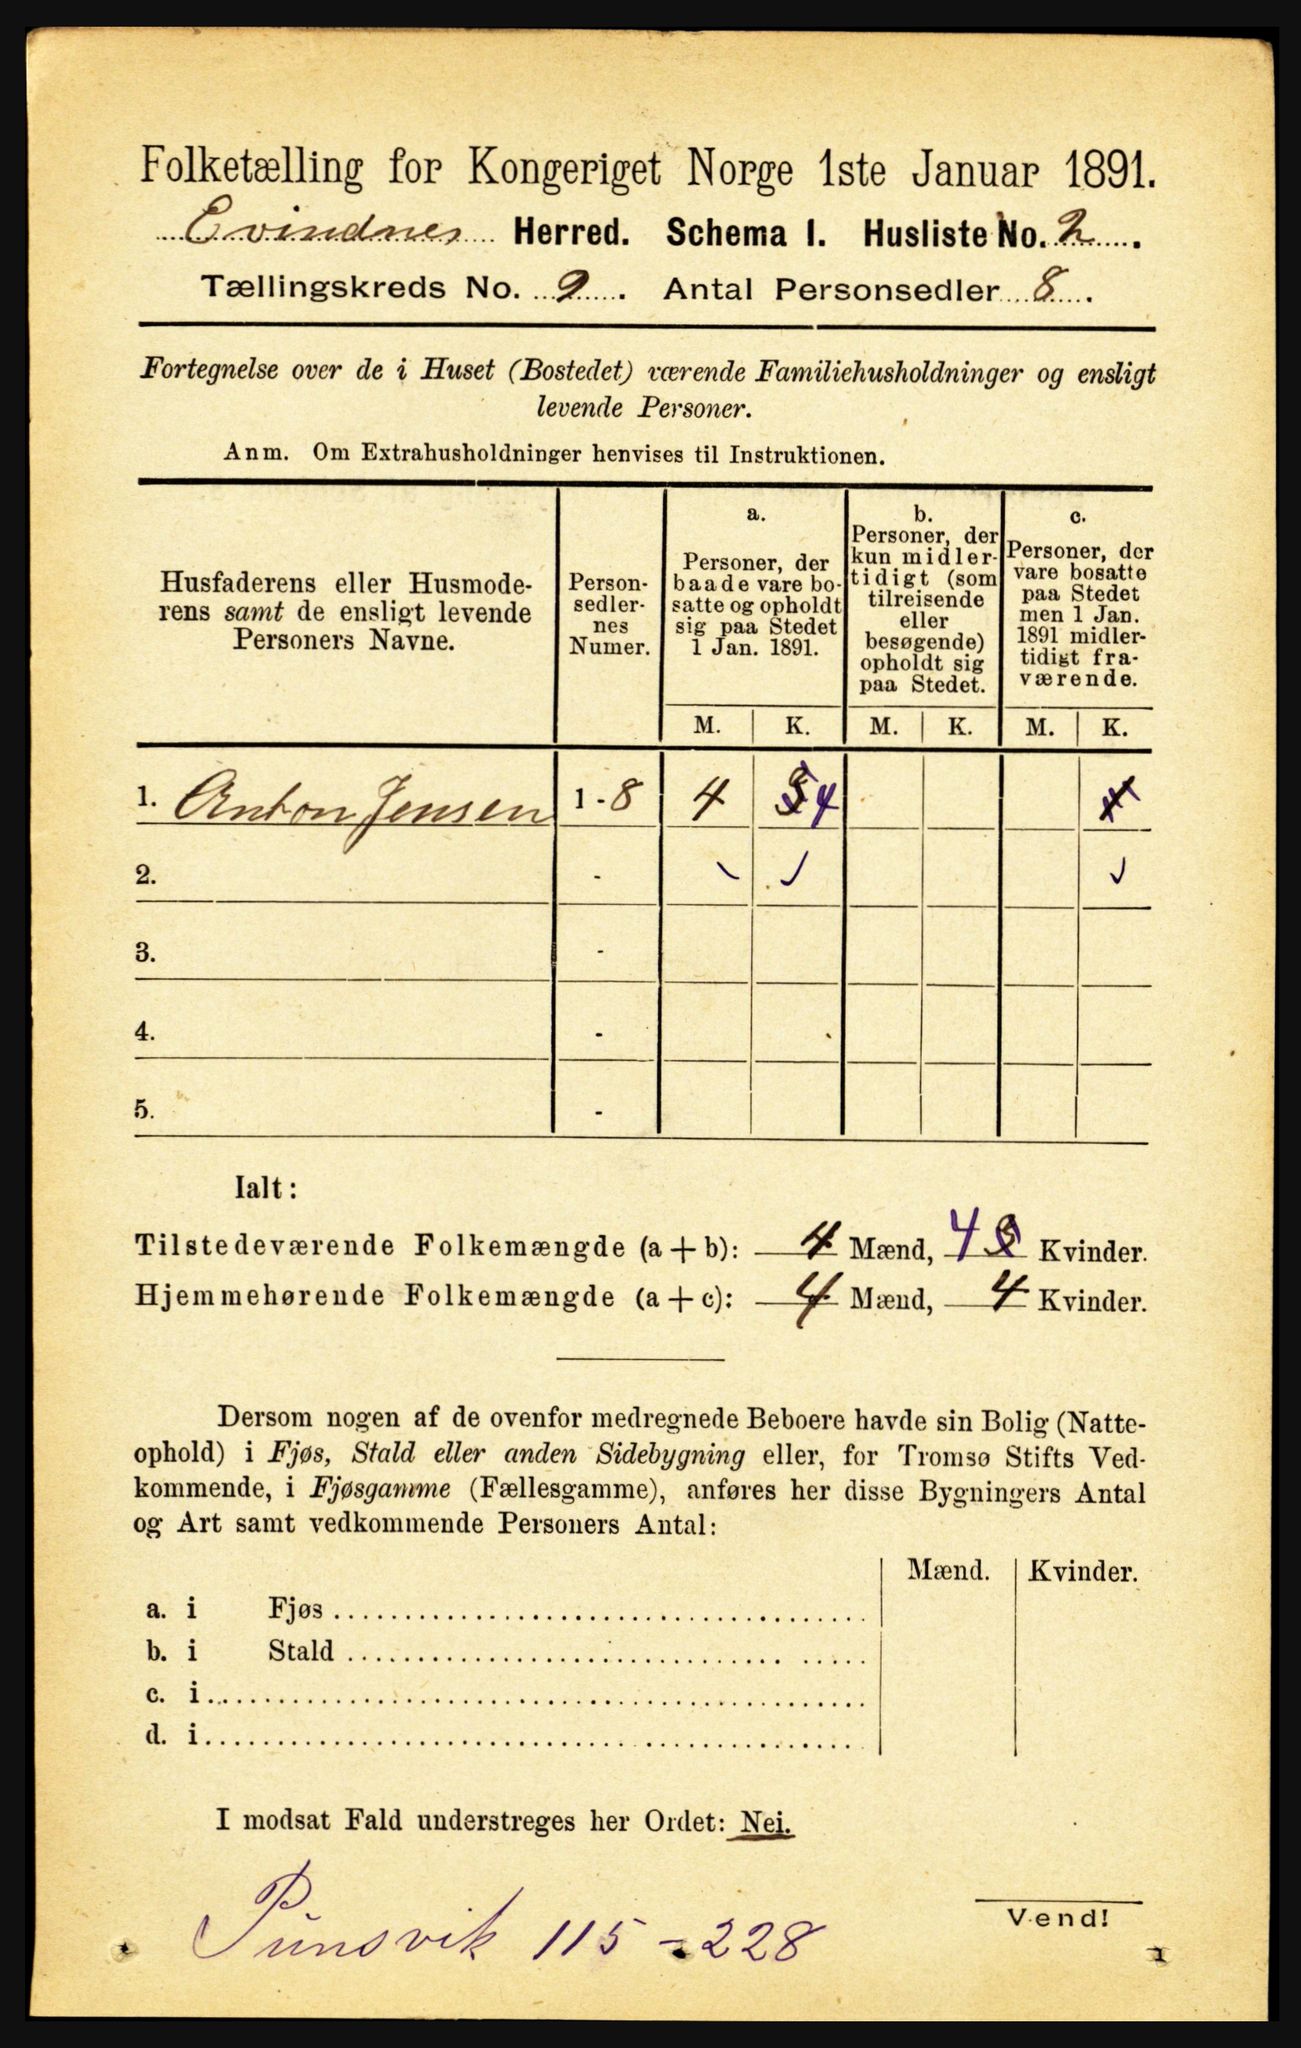 Folketælling for Kongeriget Norge 1ste Januar 1891.
Evindnes Herred. Schema I. Husliste No. 2.
Tællingskreds No. 9. Antal Personsedler 8.
Fortegnelse over de i Huset (Bostedet) værende Familiehusholdninger og ensligt
levende Personer.
Anm. Om Extrahusholdninger henvises til Instruktionen.
Husfaderens eller Husmode-
rens samt de ensligt levende
Personers Navne.
Person-
sedler-
nes
Numer.
a.
Personer, der
baade vare bo-
satte og opholdt
sig paa Stedet
1 Jan. 1891.
b.
Personer, der
kun midler-
tidigt (som
tilreisende
eller
besøgende)
opholdt sig
paa Stedet.
c.
Personer, der
vare bosatte
paa Stedet
men 1 Jan.
1891 midler-
tidigt fra-
værende.
M. K. M. K. M. K.
1. Anton Jensen 1 - 8 4 4
2. -
3. -
4. -
5. -
Ialt:
Tilstedeværende Folkemængde (a + b): 4 Mænd, 4 Kvinder.
Hjemmehørende Folkemængde (a + c): 4 Mænd, 4 Kvinder.
Dersom nogen af de ovenfor medregnede Beboere havde sin Bolig (Natte-
ophold) i Fjøs, Stald eller anden Sidebygning eller, for Tromsø Stifts Ved-
kommende, i Fjøsgamme (Fællesgamme), anføres her disse Bygningers Antal
og Art samt vedkommende Personers Antal:
Mænd. Kvinder.
a. i Fjøs
b. i Stald
c. i
d. i
I modsat Fald understreges her Ordet: Nei.
Vend!
Pünsvik 115 - 228
1